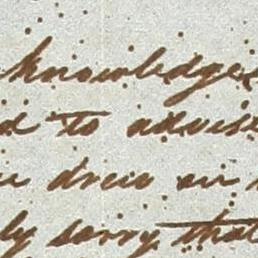 knowledge
d to advise
u drew on
ly sorry that